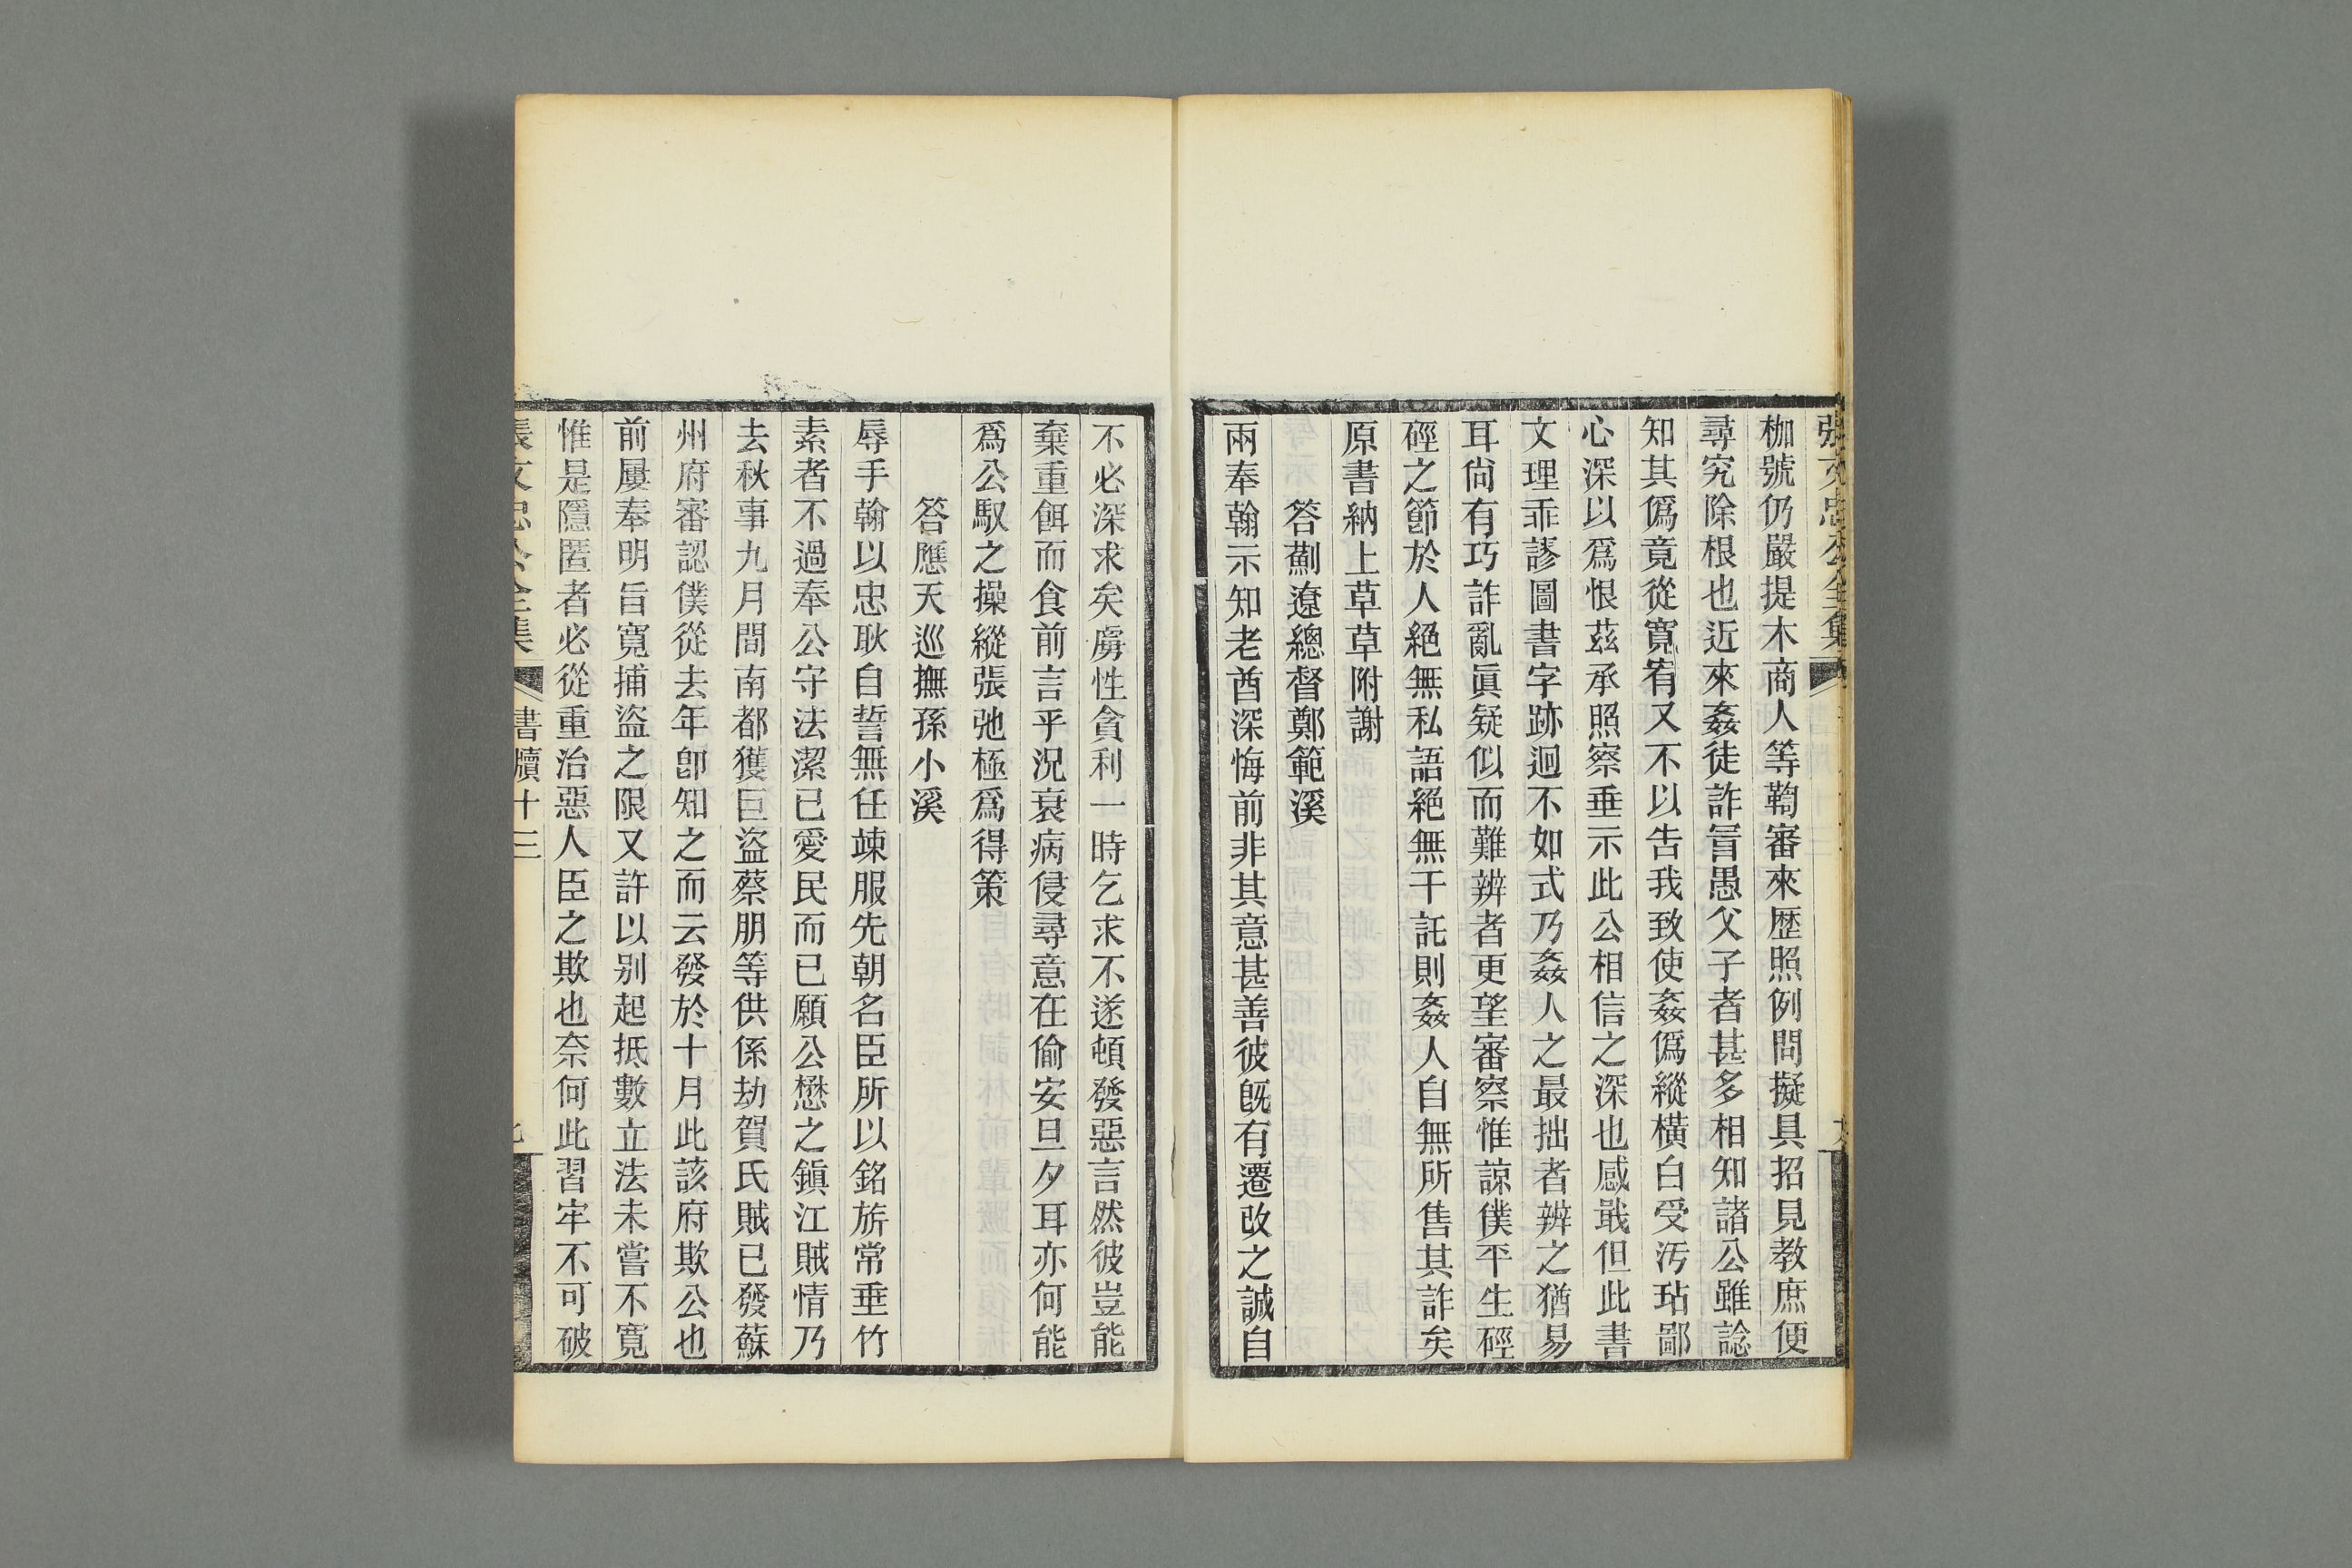 張文忠公全集
枷號仍嚴提木商人等鞫審來歷照例問擬具招見教庶便
尋究除根也近來姦徒詐冒愚父子者甚多相知諸公雖諗
知其僞竟從寬宥又不以告我致使姦僞縱橫白受汚玷鄙
心深以爲恨茲承照察垂示此公相信之深也感戢但此書
文理乖謬圖書字跡迥不如式乃姦人之最拙者辨之猶易
耳尙有巧詐亂眞疑似而難辨者更望審察惟諒僕平生硜
硜之節於人絕無私語絕無干託則姦人自無所售其詐矣
原書納上草草附謝
答薊遼總督鄭範溪
兩奉翰示知老酋深悔前非其意甚善彼旣有遷改之誠自
不必深求矣虜性貪利一時乞求不遂頓發惡言然彼豈能
棄重餌而食前言乎況衰病侵尋意在偷安旦夕耳亦何能
爲公馭之操縱張弛極爲得策
答應天巡撫孫小溪
辱手翰以忠耿自誓無任竦服先朝名臣所以銘旂常垂竹
素者不過奉公守法潔已愛民而已願公懋之鎭江賊情乃
去秋事九月間南都獲巨盜蔡朋等供係劫賀氏賊已發蘇
州府審認僕從去年卽知之而云發於十月此該府欺公也
前屢奉明旨寬捕盜之限又許以別起抵數立法未嘗不寬
惟是隱匿者必從重治惡人臣之欺也奈何此習牢不可破
張文忠公全集
書牘十三